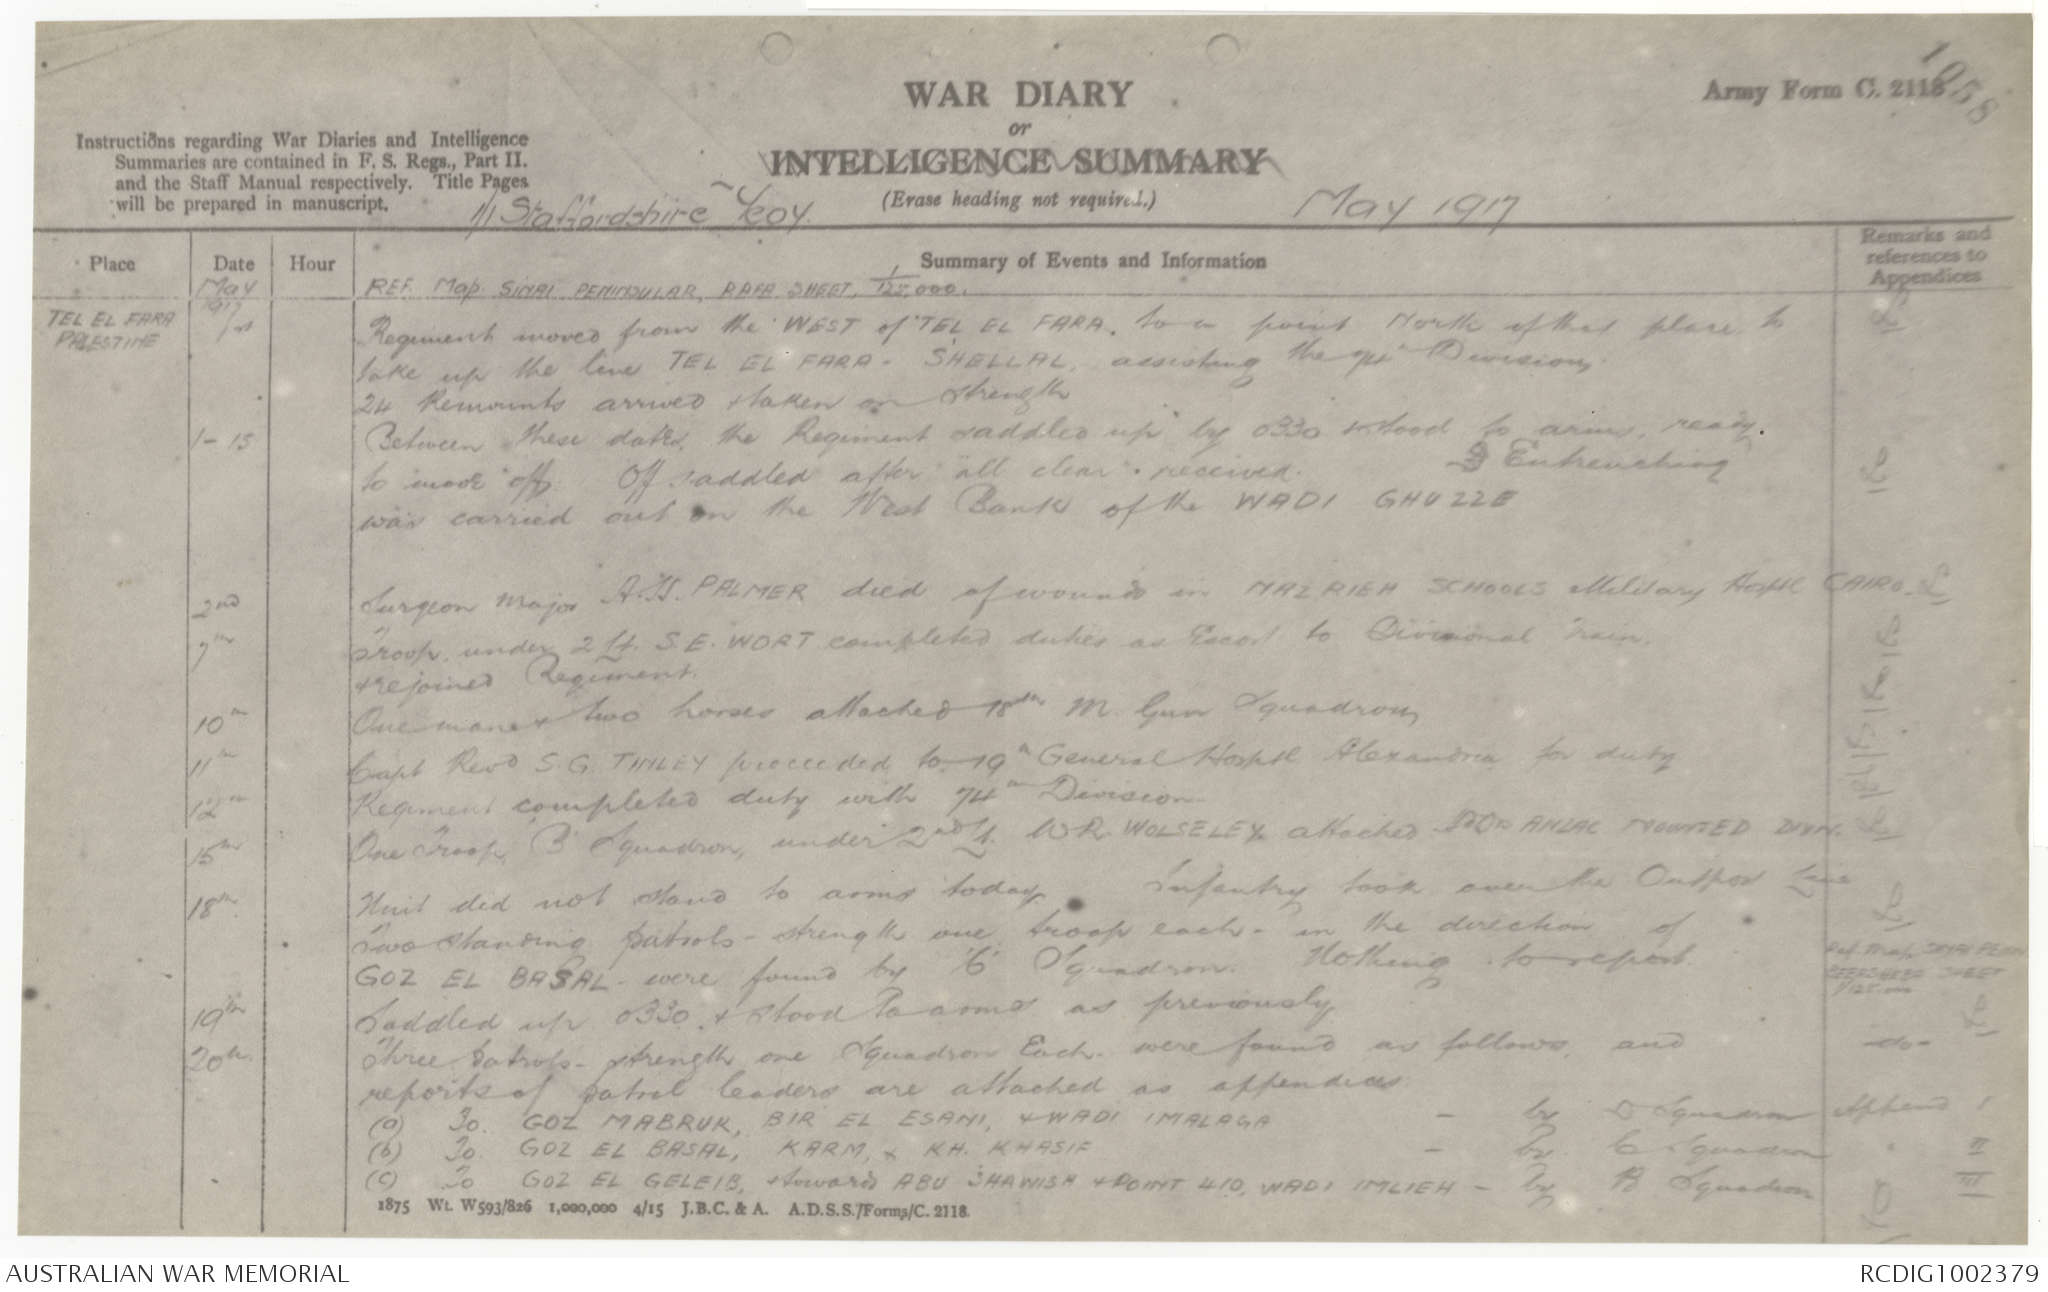 1058
WAR DIARY
or
INTELLIGENCE SUMMARY
(Erase heading not required.)
Army Form C. 2118
Instructions regarding War Diaries and Intelligence
Summaries are contained in F. S. Regs., Part II.
and the Staff Manual respectively. Title Pages
will be prepared in manuscript.
1/1 Staffordshire Yeoy.
May 1917
Place
Date
Hour
Summary of Events and Information
Remarks and
references to
Appendices
May
1917
REF. Map. SINAI PENINSULAR, RAFA SHEET, 1/125,000.
TEL EL FARA
PALESTINE
1st
Regiment moved from the WEST of TEL EL FARA, to a point North of that place to
take up the line TEL EL FARA - SHELLAL, assisting the 74th Division.
24 Remounts arrived & taken on strength
1-15
Between these dates, the Regiment saddled up by 0330 & stood to arms, ready
to move off. Off saddled after "all clear" received. Entrenching
was carried out on the West Bank of the WADI GHUZZE
2nd
Surgeon Major A.H. PALMER died of wounds in NAZRIEH SCHOOLS Military Hosptl CAIRO.
7th
Troop, under 2 Lt. S.E. WORT completed duties as Escort to Divisional Train.
& rejoined Regiment.
10th
One man & two horses attached 18th M. Gun Squadron
11th
Capt Revd S.G. TINLEY proceeded to 19th General Hosptl Alexandria for duty
12th
Regiment completed duty with 74th Division
15th
One Troop, B Squadron, under 2nd Lt. W.R. WOLSELEY attached ANZAC MOUNTED DIVN.
18th
Unit did not stand to arms today. Infantry took over the Outpost Line
Two standing patrols - strength one troop each - in the direction of
GOZ EL BASAL - were found by 'C' Squadron. Nothing to report.
Ref. Map. SINAI PENIN
BEERSHEBA SHEET
1/125,000
19th
Saddled up 0330 & stood to arms as previously
20th
Three patrols - strength one Squadron Each - were found as follows, and
-do-
reports of patrol leaders are attached as appendices
(a) To. GOZ MABRUK, BIR EL ESANI, & WADI IMALAGA - by D Squadron Append I
(b) To. GOZ EL BASAL, KARM, & KH. KHASIF - by C Squadron " II
(c) To GOZ EL GELEIB, & towards ABU SHAWISH & POINT 410, WADI IMLIEH - by B Squadron III
1875 Wt. W593/826 1,000,000 4/15 J.B.C. & A. A.D.S.S./Forms/C. 2118.
AUSTRALIAN WAR MEMORIAL
RCDIG1002379